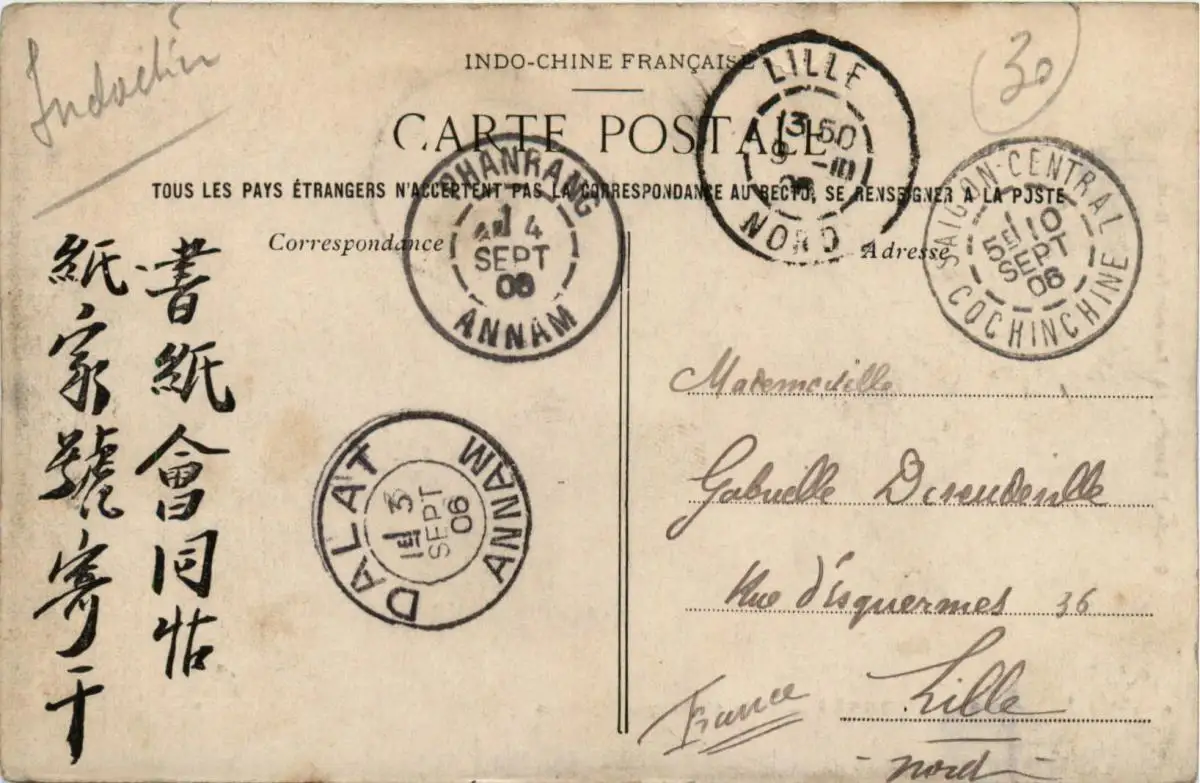 Indochin
30
INDO-CHINE FRANÇAISE
CARTE POSTALE
TOUS LES PAYS ÉTRANGERS N'ACCEPTENT PAS LA CORRESPONDANCE AU RECTO, SE RENSEIGNER A LA POSTE
Correspondance
Adresse
LILLE
13 50
9 -10
06
NORD
PHANRANG
4
SEPT
06
ANNAM
SAIGON-CENTRAL
10
SEPT
06
COCHINCHINE
DALAT
3
SEPT
06
ANNAM
書紙會同
紙家號寄于
Mademoiselle
Gabrielle
Rue d'Esquermes 36
Lille
Nord
France